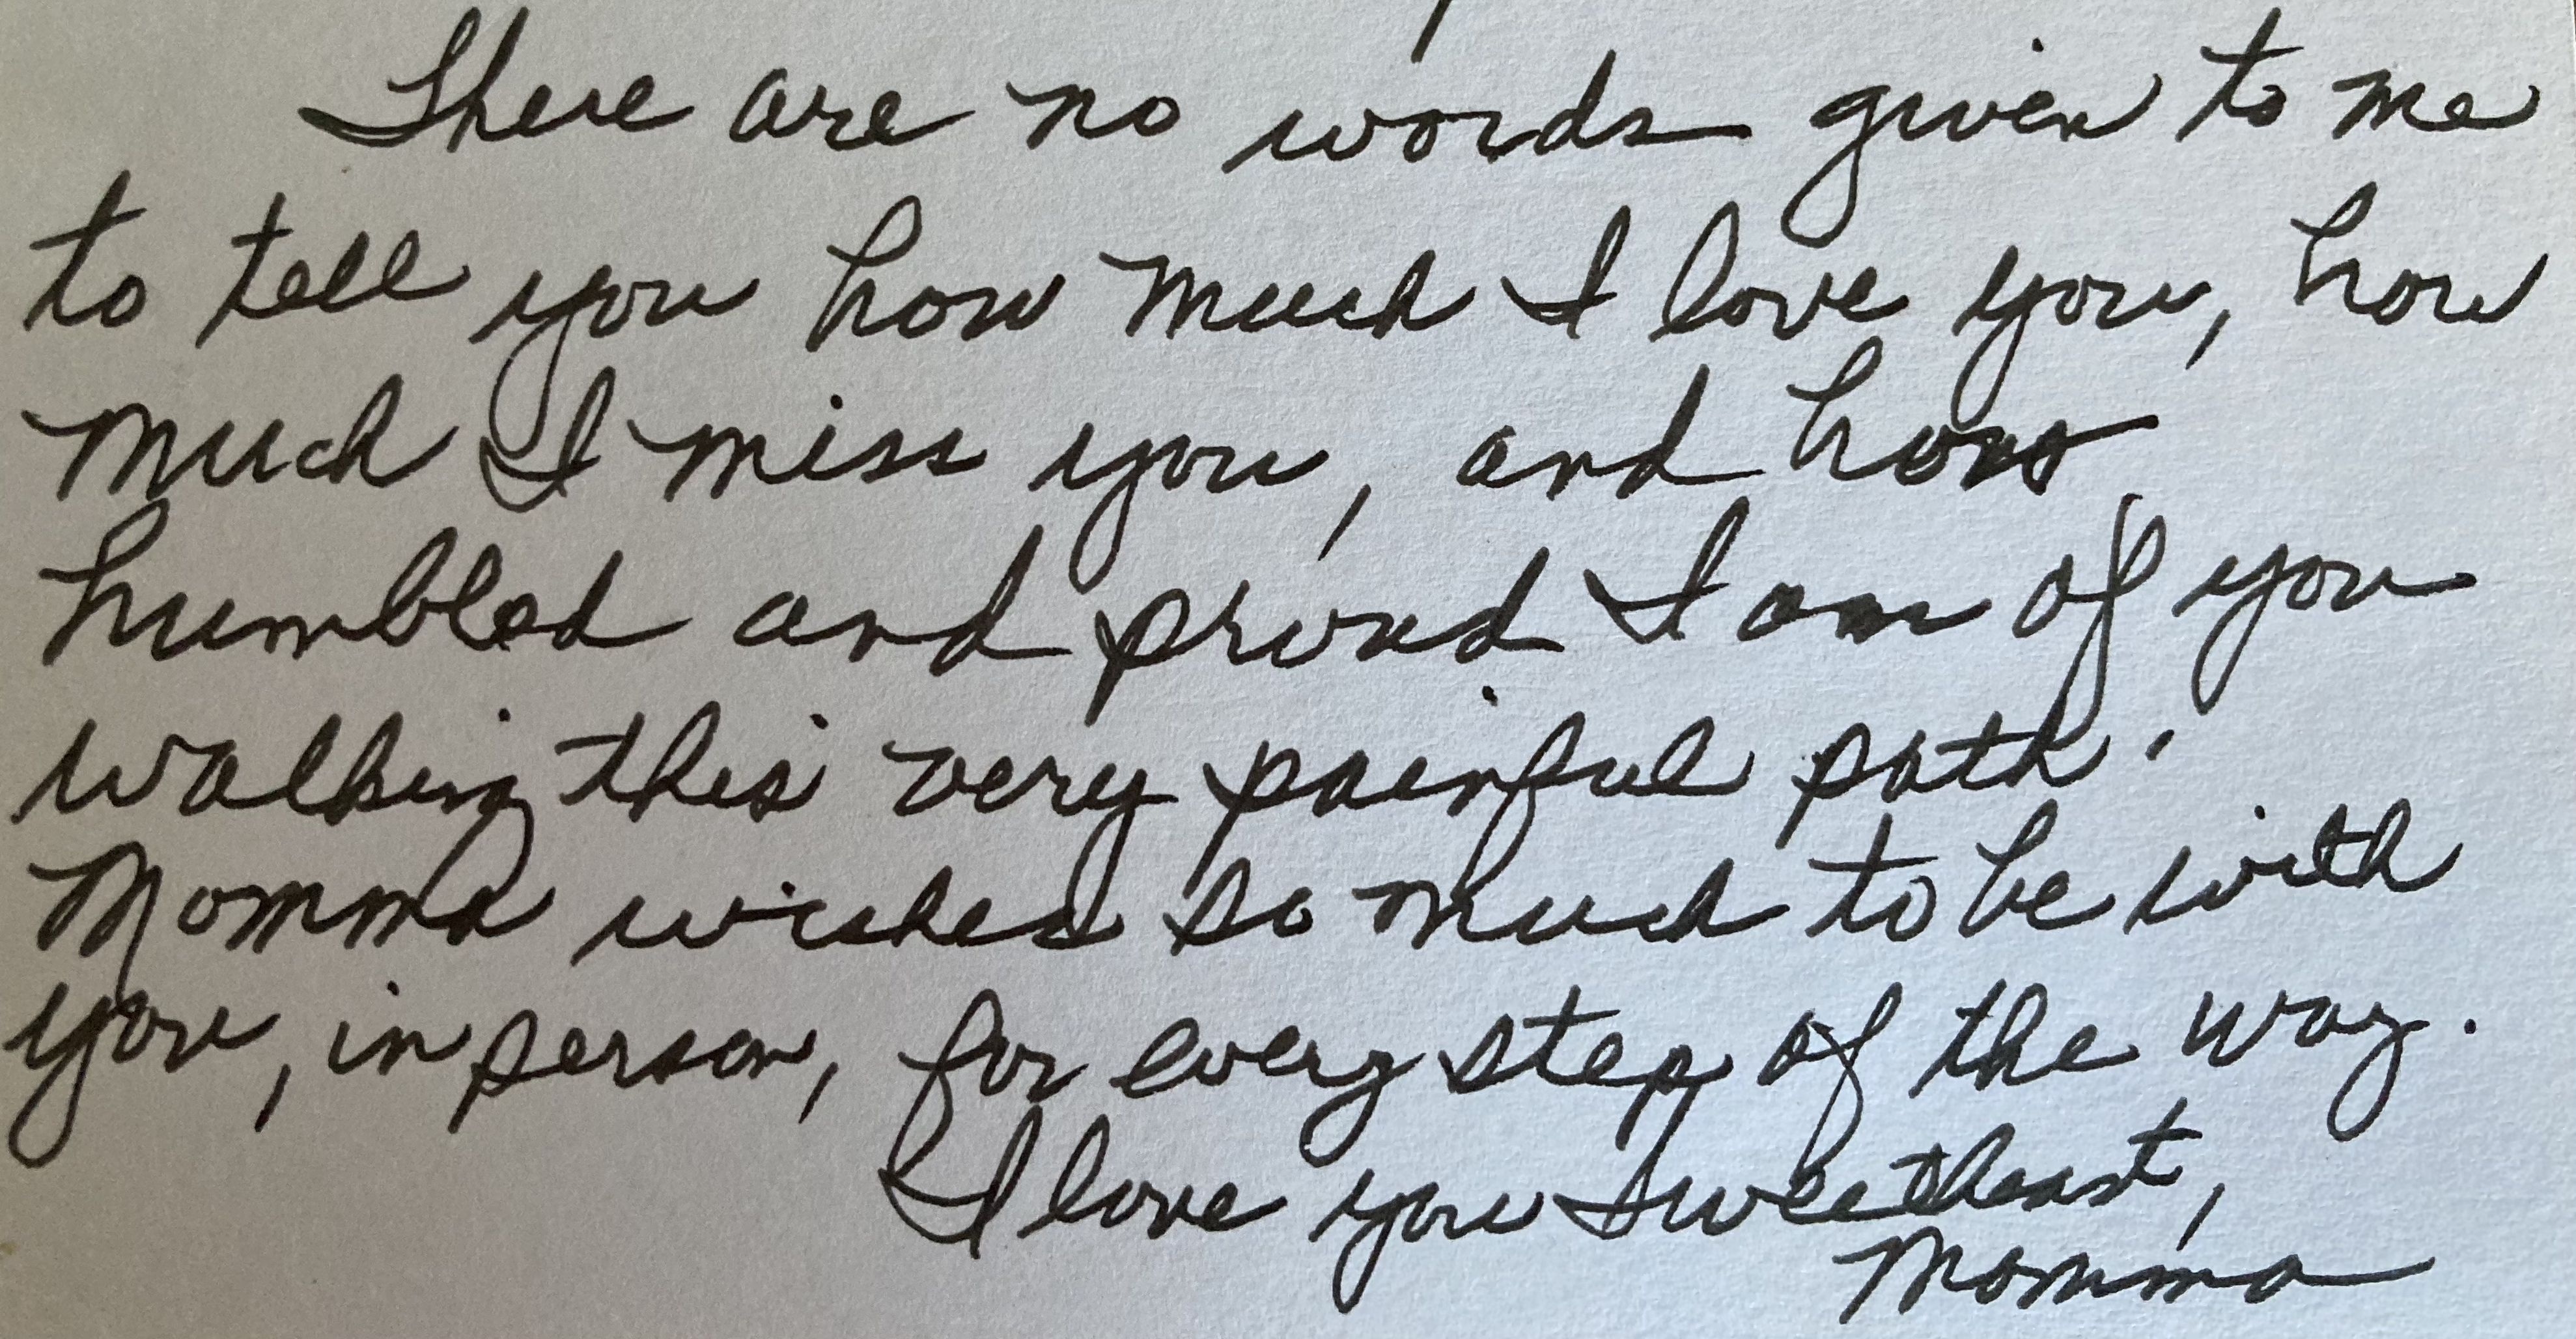 There are no words given to me
to tell you how much I love you, how
much I miss you, and how
humbled and proud I am of you
walking this very painful path.
Momma wishes so much to be with
you, in person, for every step of the way.
I love you sweetheart,
Momma